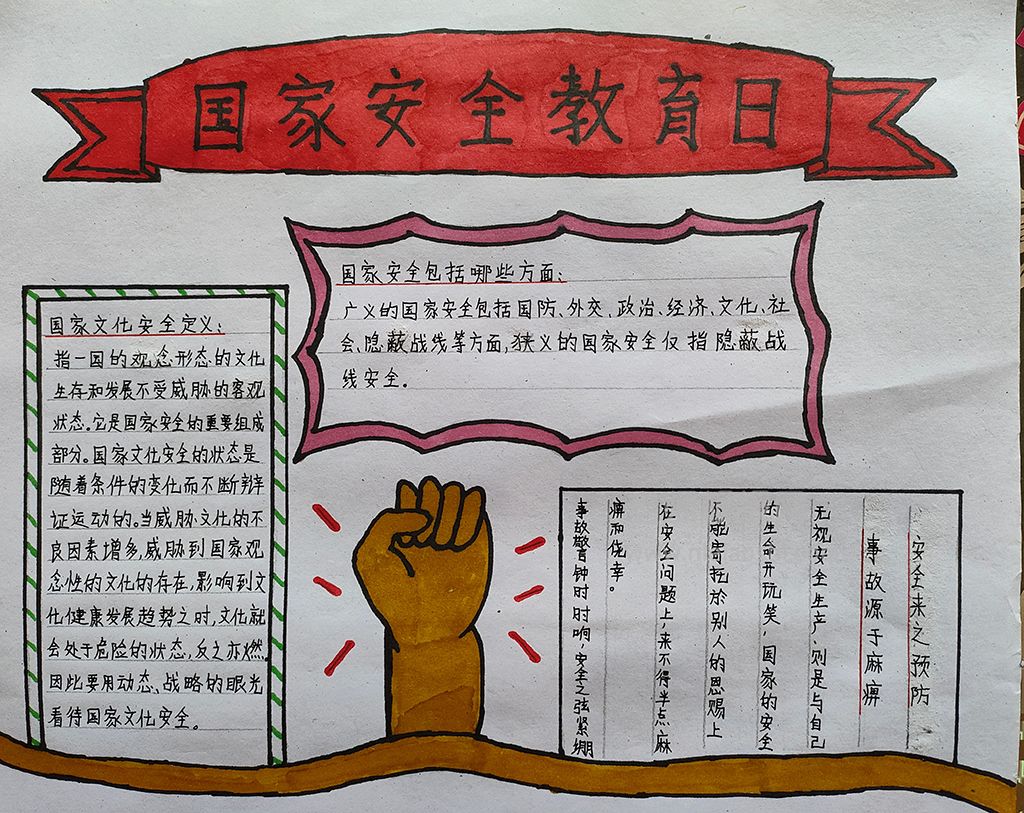 国家安全教育日
国家安全包括哪些方面:
广义的国家安全包括国防、外交、政治、经济、文化、社
会、隐蔽战线等方面,狭义的国家安全仅指隐蔽战
线安全。
国家文化安全定义:
指一国的观念形态的文化
生存和发展不受威胁的客观
状态。它是国家安全的重要组成
部分。国家文化安全的状态是
随着条件的变化而不断辩
证运动的。当威胁文化的不
良因素增多,威胁到国家观
念性的文化的存在,影响到文
化健康发展趋势之时,文化就
会处于危险的状态,反之亦燃。
因此要用动态、战略的眼光
看待国家文化安全。
安全来之预防
事故源于麻痹
无视安全生产,则是与自己
的生命开玩笑,国家的安全
不能寄托於别人的恩赐上
在安全问题上,来不得半点麻
痹和侥幸。
事故警钟时时响,安全之弦紧绷